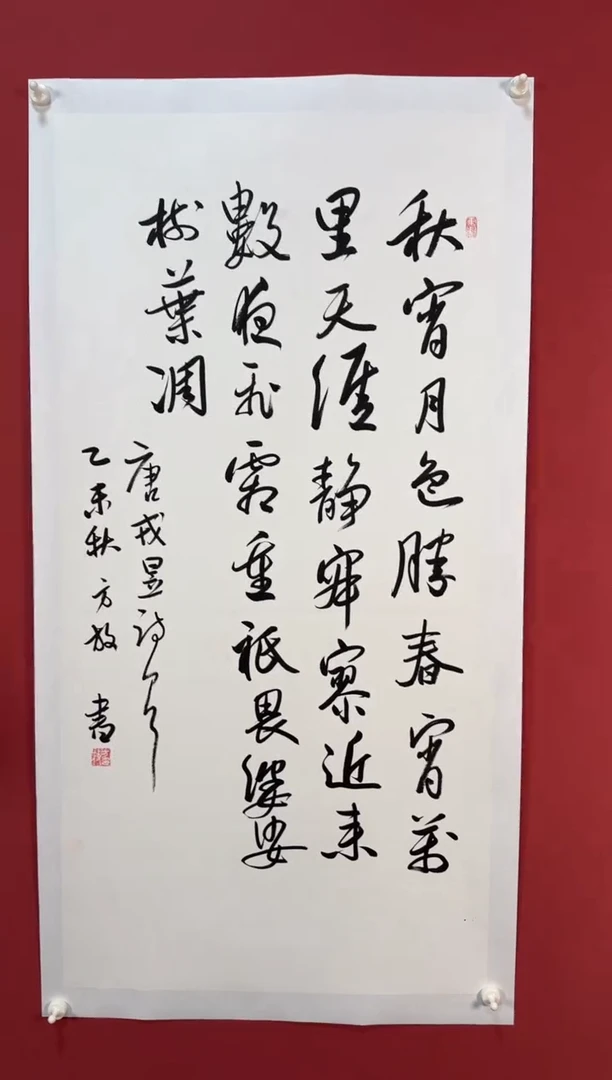 秋宵月色勝春宵萬
里天涯静寂寥近来
數夜飛霜重祇畏婆娑
樹葉凋
唐戎昱詩
乙未秋方放書